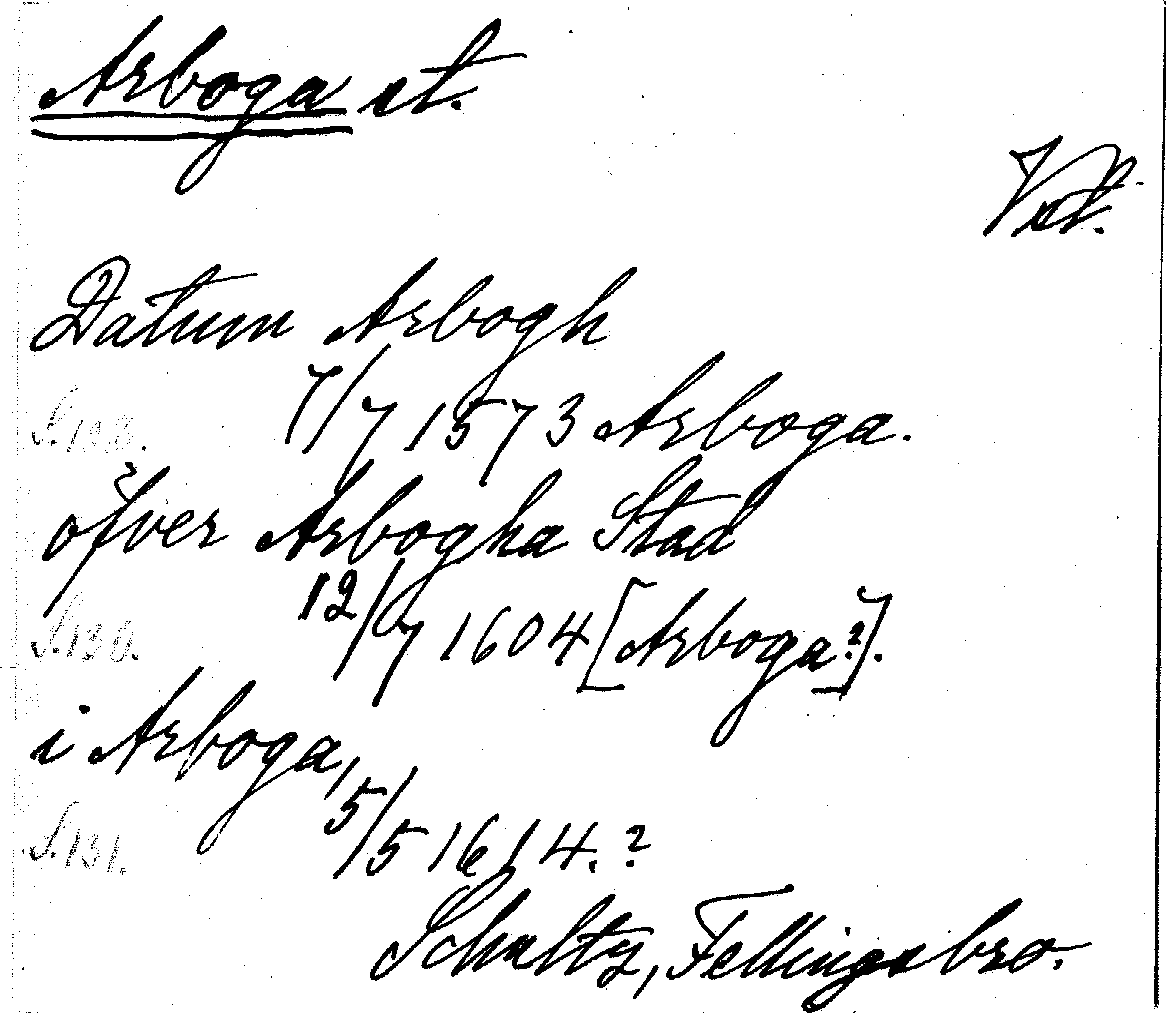 Arboga st.
Vstl.
Datum Arbogh
S. 103. 7/7 1573 Arboga.
öfver Arbogha Stad
S. 130. 12/7 1604 [Arboga?].
i Arboga,
S. 131. 5/5 1614.?
Schultz, Fellingsbro.